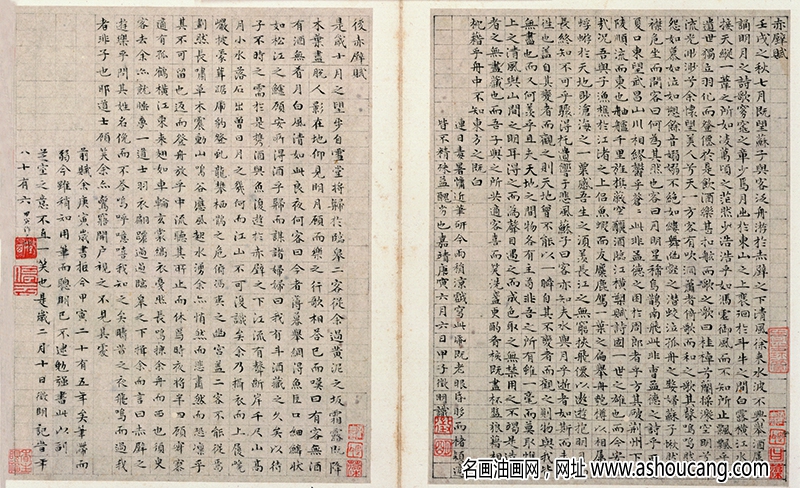 赤壁賦
壬戌之秋七月既望蘇子與客泛舟游於赤壁之下清風徐來水波不興舉酒屬客
誦明月之詩歌窈窕之章少焉月出於東山之上裵徊於斗牛之間白露橫江水光
接天縱一葦之所如凌萬頃之茫然浩浩乎如馮虛御風而不知所止飄飄乎如
遺世獨立羽化而登僊於是飲酒樂甚扣舷而歌之歌曰桂棹兮蘭槳擊空明兮泝
流光渺渺兮余懷望美人兮天一方客有吹洞簫者倚歌而和之其聲嗚嗚然如
怨如慕如泣如訴餘音嫋嫋不絕如縷舞幽壑之潛蛟泣孤舟之嫠婦蘇子愀然正
襟危坐而問客曰何為其然也客曰月明星稀烏鵲南飛此非曹孟德之詩乎西望
夏口東望武昌山川相繆鬱乎蒼蒼此非孟德之困於周郎者乎方其破荊州下江
陵順流而東也舳艫千里旌旗蔽空釃酒臨江橫槊賦詩固一世之雄也而今安在
哉況吾與子漁樵於江渚之上侶魚蝦而友麋鹿駕一葉之扁舟舉匏樽以相屬寄
蜉蝣於天地眇滄海之一粟哀吾生之須臾羨長江之無窮挾飛僊以遨遊抱明月而
長終知不可乎驟得托遺響於悲風蘇子曰客亦知夫水與月乎逝者如斯而未嘗
往也蓋自其變者而觀之則天地曾不能以一瞬自其不變者而觀之則物與我皆
無盡也而又何羨乎且夫天地之間物各有主苟非吾之所有雖一毫而莫取惟江
上之清風與山間之明月耳得之而為聲目遇之而成色取之無禁用之不竭是造物
者之無盡藏也而吾與子之所共適客喜而笑洗盞更酌肴核既盡杯盤狼藉相與
枕藉乎舟中不知東方之既白
連日毒暑 近筆研今雨稍涼試寫此 既老眼昏
皆不精殊益醜劣也嘉靖庚寅六月六日甲子徵明識
後赤壁賦
是歲十月之望步自雪堂將歸於臨皋二客從余過黃泥之坂霜露既降
木葉盡脫人影在地仰見明月顧而樂之行歌相答已而嘆曰有客無酒
有酒無肴月白風清如此良夜何客曰今者薄暮舉網得魚巨口細鱗狀
如松江之鱸顧安所得酒乎歸而謀諸婦婦曰我有斗酒藏之久矣以待
子不時之需於是攜酒與魚復遊於赤壁之下江流有聲斷岸千尺山高
月小水落石出曾日月之幾何而江山不可復識矣余乃攝衣而上履巉
巖披蒙茸踞虎豹登虯龍攀棲鶻之危俯馮夷之幽宮蓋二客不能從焉
劃然長嘯草木震動山鳴谷應風起水湧余亦悄然而悲肅然而恐凜乎
其不可留也返而登舟放乎中流聽其所止而休焉時夜將半四顧寂寥
適有孤鶴橫江東來翅如車輪玄裳縞衣戛然長鳴掠余舟而西也須臾
客去余亦就睡夢一道士羽衣翩躚過臨皋之下揖余而言曰赤壁之
遊樂乎問其姓名俛而不答嗚呼噫嘻我知之矣疇昔之夜飛鳴而過我
者非子也耶道士顧笑余亦驚悟開戶視之不見其處
前賦余庚寅歲書抵今甲寅二十有五年矣筆
弱今雖稍知用筆而聰明已不逮勉強書此以副
芝室之意不直一笑也是歲二月十日徵明記昔年
八十有六
名画油画网，网址 www.ashoucang.com